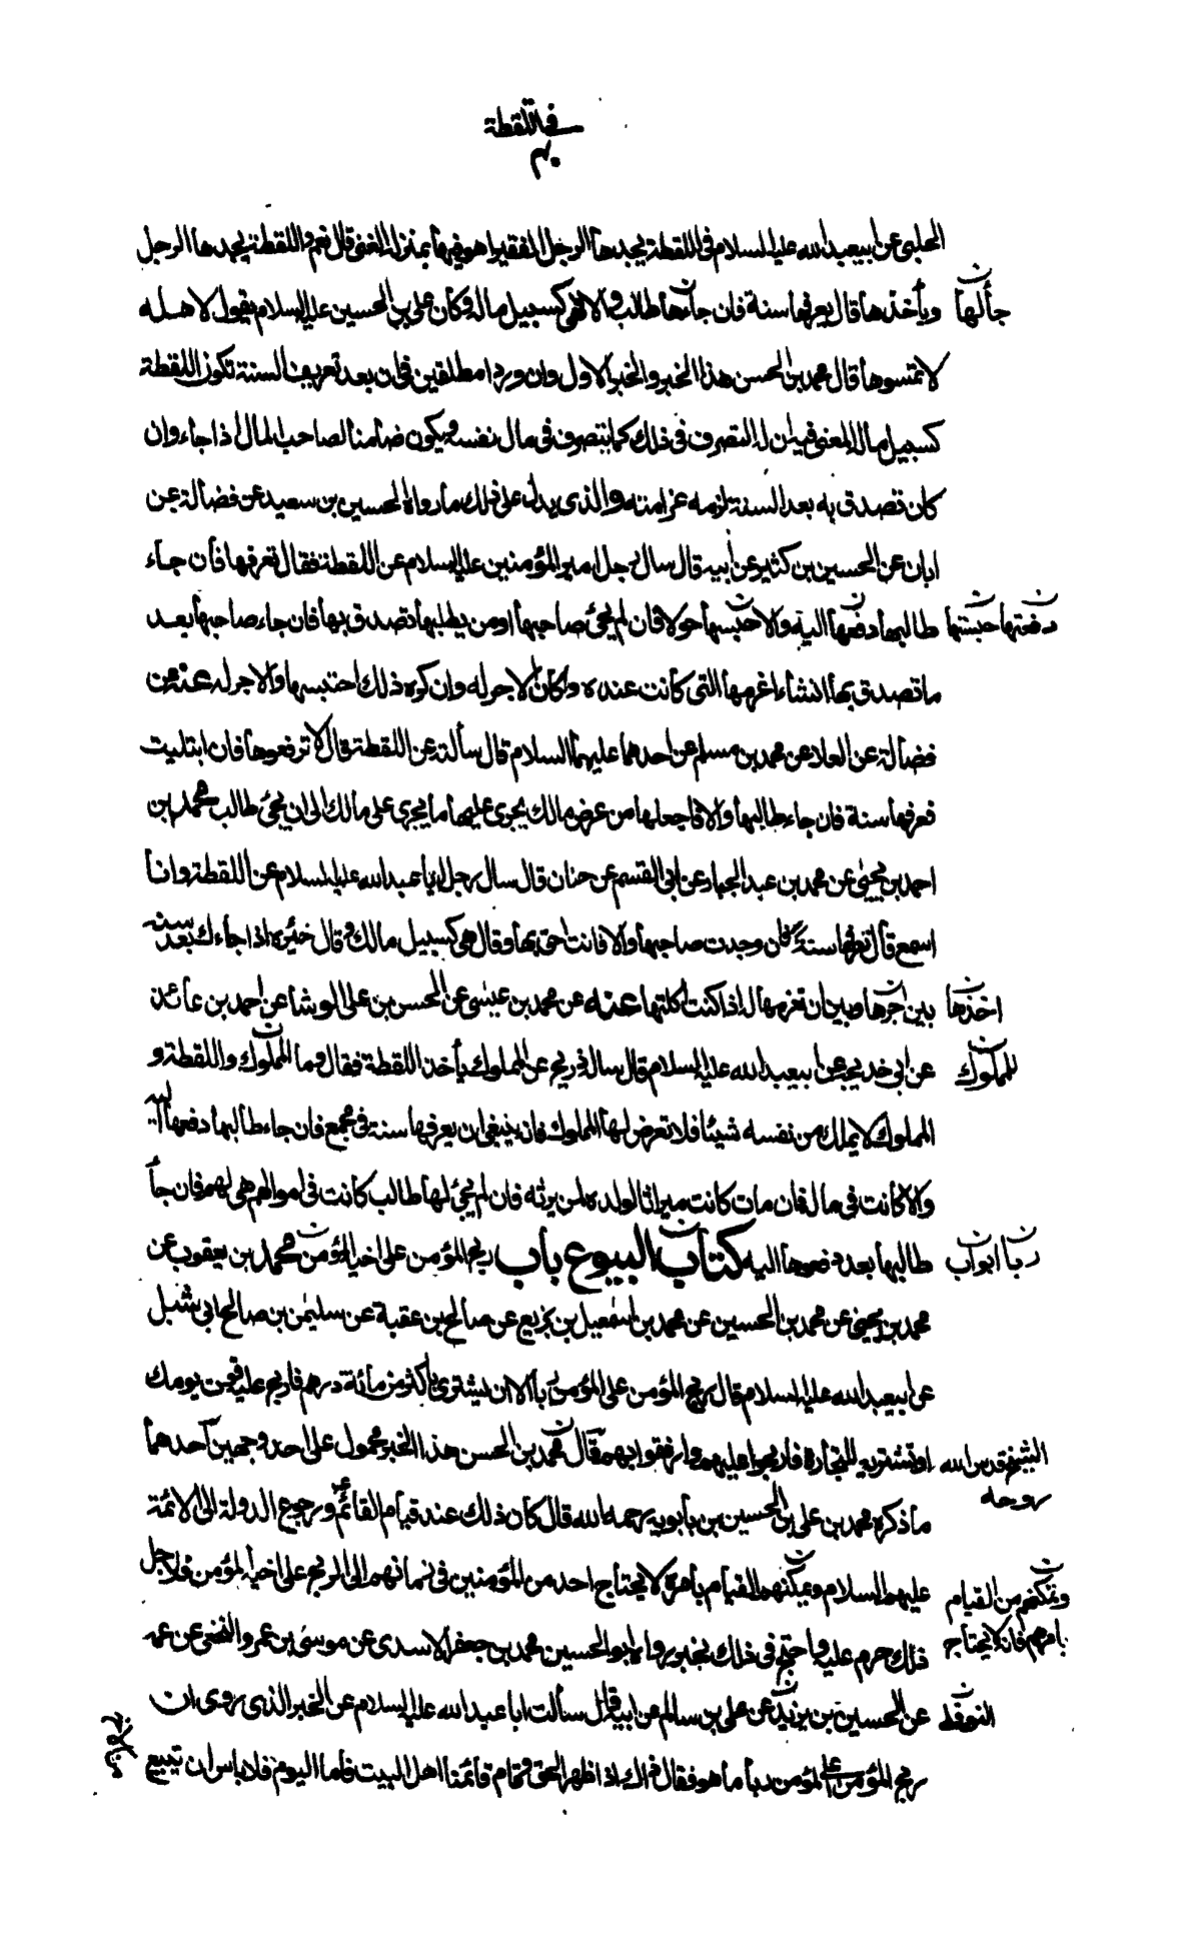 في اللقطة
٤٠
الحلبي عن ابيعبد الله عليه السلام في اللقطة يجدها الرجل الفقير اهو فيها بمنزلة الغني قال نعم واللقطة يجدها الرجل
ويأخذها قال يعرفها سنة فان جاء لها طالب والا فهي كسبيل ماله وكان علي بن الحسين عليه السلام يقول لاهله
جاء لها ن
لا تمسوها قال محمد بن الحسن هذا الخبر والخبر الاول وان وردا مطلقين في ان بعد تعريف السنة تكون اللقطة
كسبيل ماله المعنى فيه ان له التصرف في ذلك كما يتصرف في مال نفسه ويكون ضامنا لصاحب المال اذا جاء وان
كان تصدق به بعد السنة تلزمه غرامته والذي يدل على ذلك ما رواه الحسين بن سعيد عن فضالة عن
ابان عن الحسين بن كثير عن ابيه قال سال رجل امير المؤمنين عليه السلام عن اللقطة فقال تعرفها فان جاء
طالبها دفعها اليه والا حبسها حولا فان لم يجئ صاحبها او من يطلبها تصدق بها فان جاء صاحبها بعد
دفعتها ن حبستها ن
ما تصدق بها ان شاء اغرمها التي كانت عنده وكان الاجر له وان كره ذلك احتبسها والاجر له عنه عن
فضالة عن العلا عن محمد بن مسلم عن احدهما عليهما السلام قال سألته عن اللقطة قال لا ترفعوها فان ابتليت
فعرفها سنة فان جاء طالبها والا فاجعلها من عرض مالك يجري عليها ما يجري على مالك الى ان يجئ طالب محمد بن
احمد بن يحيى عن محمد بن عبد الجبار عن ابي القسم عن حنان قال سال رجل ابا عبد الله عليه السلام عن اللقطة وانا
اسمع قال تعرفها سنة فان وجدت صاحبها والا فانت احق بها وقال هي كسبيل مالك وقال خيره اذا جاءك بعد سنة
بين اجرها وبين ان تغرمها له اذا كنت اكلتها عنه عن محمد بن عيسى عن الحسن بن علي الوشا عن احمد بن عائذ
اخذها ن
عن ابي خديجة عن ابيعبد الله عليه السلام قال ساله ذريح عن المملوك يأخذ اللقطة فقال وما المملوك واللقطة و
للمملوك ن
المملوك لا يملك من نفسه شيئا فلا تعرض لها المملوك فانه ينبغي ان يعرفها سنة في مجمع فان جاء طالبها دفعها اليه
والا كانت في ماله فان مات كانت ميراثا لولده لمن يرثه فان لم يجئ لها طالب كانت في اموالهم هي لهم فان جاء
طالبها بعد دفعوها اليه كتاب البيوع باب ربح المؤمن على اخيه المؤمن محمد بن يعقوب عن
ابواب ن ربا ن
محمد بن يحيى عن محمد بن الحسين عن محمد بن اسمعيل بن بزيع عن صالح بن عقبة عن سليمن بن صالح ابي شبل
عن ابيعبد الله عليه السلام قال ربح المؤمن على المؤمن ربا الا ان يشتري باكثر من مائة درهم فاربح عليه قوت يومك
او تشتريه للتجارة فاربحوا عليهم وارفقوا بهم قال محمد بن الحسن هذا الخبر محمول على احد وجهين احدهما
الشيخ قدس الله
روحه
ما ذكره محمد بن علي بن الحسين بن بابويه رحمه الله قال كان ذلك عند قيام القائم ع ورجوع الدولة الى الائمة
عليهم السلام وتمكنهم القيام بأمره لا يحتاج احد من المؤمنين في زمانهم الى الربح على اخيه المؤمن فلاجل
وتمكنهم من القيام
بامرهم فانه لا يحتاج
ذلك حرم عليه واحتج في ذلك بخبر رواه ابو الحسين محمد بن جعفر الاسدي عن موسى بن عمر والنخعي عن عمه
عن الحسين بن يزيد عن علي بن سالم عن ابيه قال سألت ابا عبد الله عليه السلام عن الخبر الذي روى ان
النوفلي ن
ربح المؤمن على المؤمن ربا ما هو فقال ذاك اذا ظهر الحق وقام قائمنا اهل البيت فاما اليوم فلا باس ان تبيع